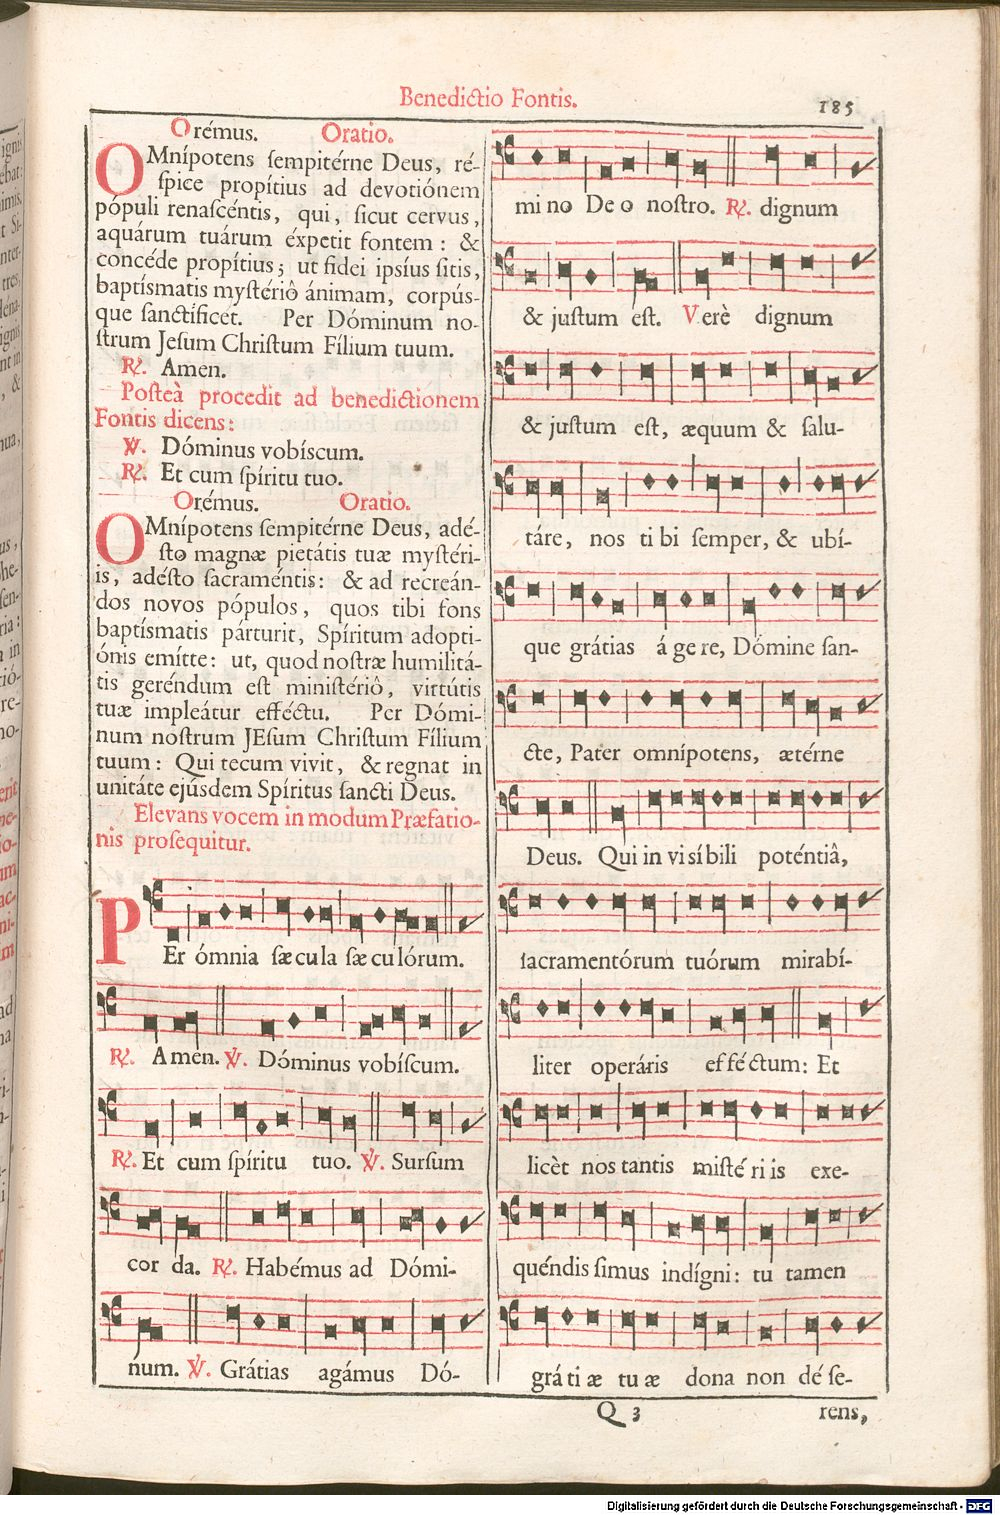 Benedictio Fontis.
185
Orémus. Oratio.
OMnípotens ſempitérne Deus, ré-
ſpice propítius ad devotiónem
pópuli renaſcéntis, qui, ſicut cervus,
aquárum tuárum éxpetit fontem: &
concéde propítius; ut fidei ipsíus ſitis,
baptíſmatis myſtériô ánimam, corpúſ-
que ſanctíficet. Per Dóminum no-
ſtrum Jeſum Chriſtum Fílium tuum.
℟. Amen.
Poſteà procedit ad benedictionem
Fontis dicens:
℣. Dóminus vobíſcum.
℟. Et cum ſpíritu tuo.
Orémus. Oratio.
OMnípotens ſempitérne Deus, adé-
ſto magnæ pietátis tuæ myſtéri-
is, adéſto ſacraméntis: & ad recreán-
dos novos pópulos, quos tibi fons
baptíſmatis párturit, Spíritum adopti-
ónis emítte: ut, quod noſtræ humilitá-
tis geréndum eſt miniſtériô, virtútis
tuæ impleátur efféctu. Per Dómi-
num noſtrum JEſum Chriſtum Fílium
tuum: Qui tecum vivit, & regnat in
unitáte ejúſdem Spíritus ſancti Deus.
Elevans vocem in modum Præfatio-
nis proſequitur.
PEr ómnia ſæ cu la ſæ cu lórum.
℟. Amen. ℣. Dóminus vobíſcum.
℟. Et cum ſpíritu tuo. ℣. Surſum
cor da. ℟. Habémus ad Dómi-
num. ℣. Grátias agámus Dó-
mi no De o noſtro. ℟. dignum
& juſtum eſt. Verè dignum
& juſtum eſt, æquum & ſalu-
táre, nos ti bi ſemper, & ubí-
que grátias á ge re, Dómine ſan-
cte, Pater omnípotens, ætérne
Deus. Qui in vi sí bili poténtiâ,
ſacramentórum tuórum mirabí-
liter operáris ef fé ctum: Et
licèt nos tantis miſté ri is exe-
quéndis ſimus indígni: tu tamen
grá ti æ tu æ dona non dé ſe-
Q 3
rens,
Digitalisierung gefördert durch die Deutsche Forschungsgemeinschaft - DFG